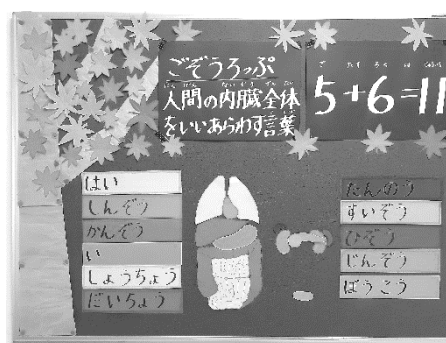 ごぞうろっぷ
人間の内臓全体
をいいあらわす言葉
5+6=11
はい
しんぞう
かんぞう
い
しょうちょう
だいちょう
たんのう
すいぞう
ひぞう
じんぞう
ぼうこう